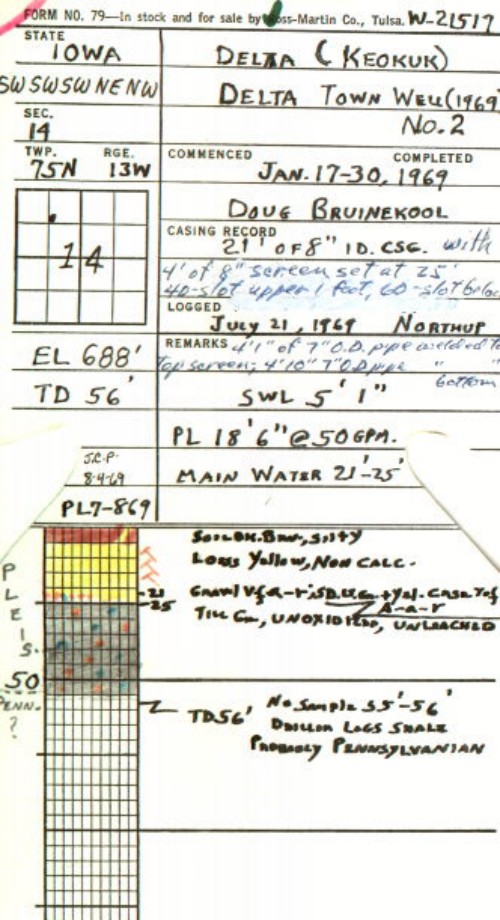 FORM NO. 79—In stock and for sale by Ross-Martin Co., Tulsa. W-21517
STATE
IOWA
DELTA (KEOKUK)
SW SW SW NE NW
DELTA TOWN WELL (1969)
No. 2
SEC.
14
TWP. RGE.
75N 13W
COMMENCED COMPLETED
JAN. 17-30, 1969
DOUG BRUINEKOOL
CASING RECORD
21' OF 8" I.D. CSG. with
4' of 8" screen set at 25'
40-slot upper 1 foot, 60-slot below
14
LOGGED
JULY 21, 1969 NORTHUP
REMARKS 4'1" of 7" O.D. pipe welded to
top screen; 4'10" 7" O.D pipe " "
bottom
EL 688'
TD 56'
SWL 5' 1"
PL 18'6" @ 50 GPM.
J.C.P.
8-4-69
MAIN WATER 21'-25'
PL7-869
SOIL DK. BRN, SILTY
LOESS YELLOW, NON CALC.
-21
-25
GRAVEL
A-a-r
TILL GR, UNOXIDIZED, UNLEACHED
PLEIS.
50
PENN.
?
TD 56'
No SAMPLE 55'-56'
DRILLER LOGS SHALE
PROBABLY PENNSYLVANIAN